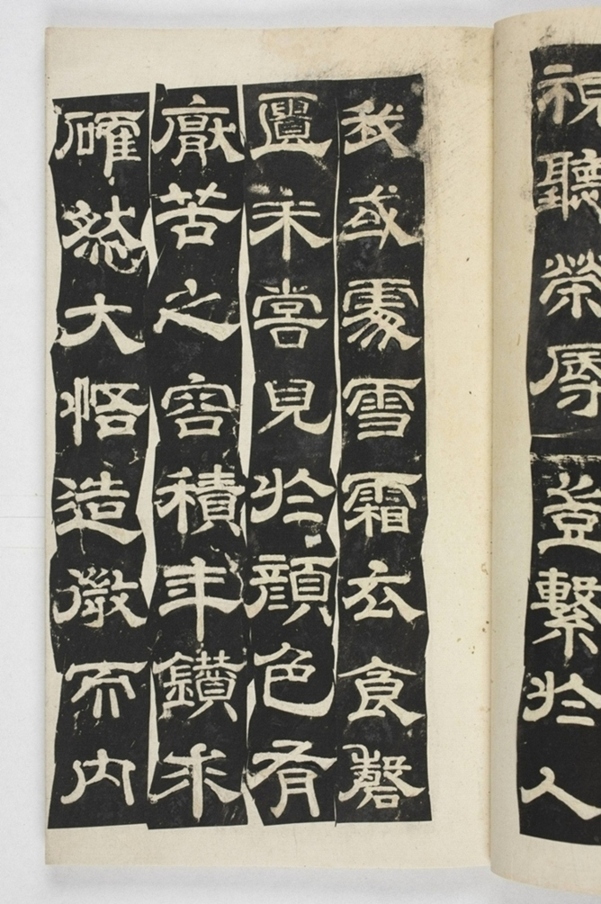 視聽榮辱豈繫於人
我或處雪霜衣食罄
匱未嘗見於顏色有
厭苦之容積年鑽求
確然大悟造微而內